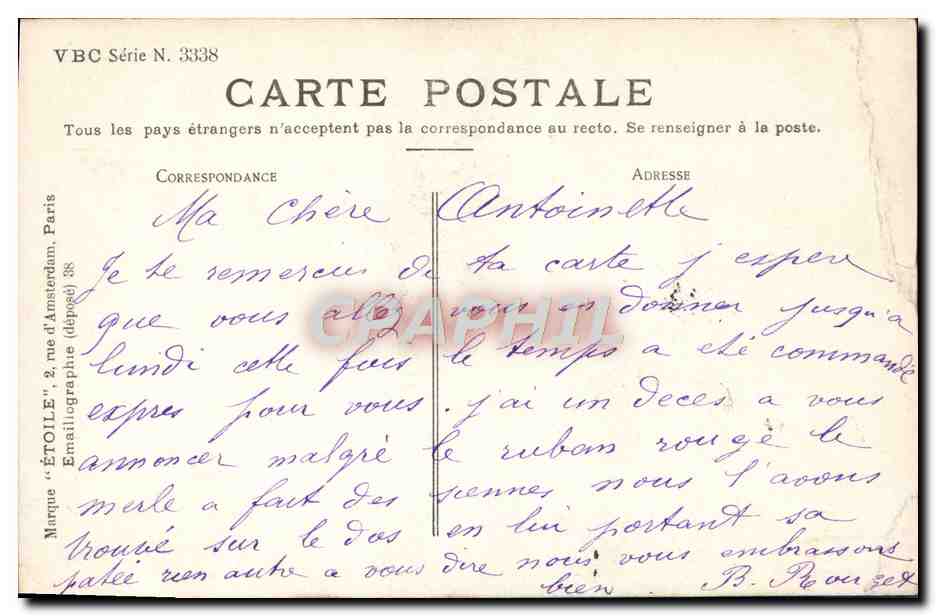 VBC Série N. 3338
CARTE POSTALE
Tous les pays étrangers n'acceptent pas la correspondance au recto. Se renseigner à la poste.
CORRESPONDANCE
ADRESSE
Marque "ÉTOILE", 2, rue d'Amsterdam, Paris
Emailiographie (déposé) 38
Ma Chère Antoinette
Je te remercie de ta carte j espere
que vous allez vous en donner jusqu'a
lundi cette fois le temps a été commandé
expres pour vous. j'ai un deces a vous
annoncer malgré le ruban rouge le
merle a fait des siennes nous l'avons
trouvé sur le dos en lui portant sa
patée rien autre a vous dire nous vous embrassons
bien. B. Rouzet
CHAPHIL